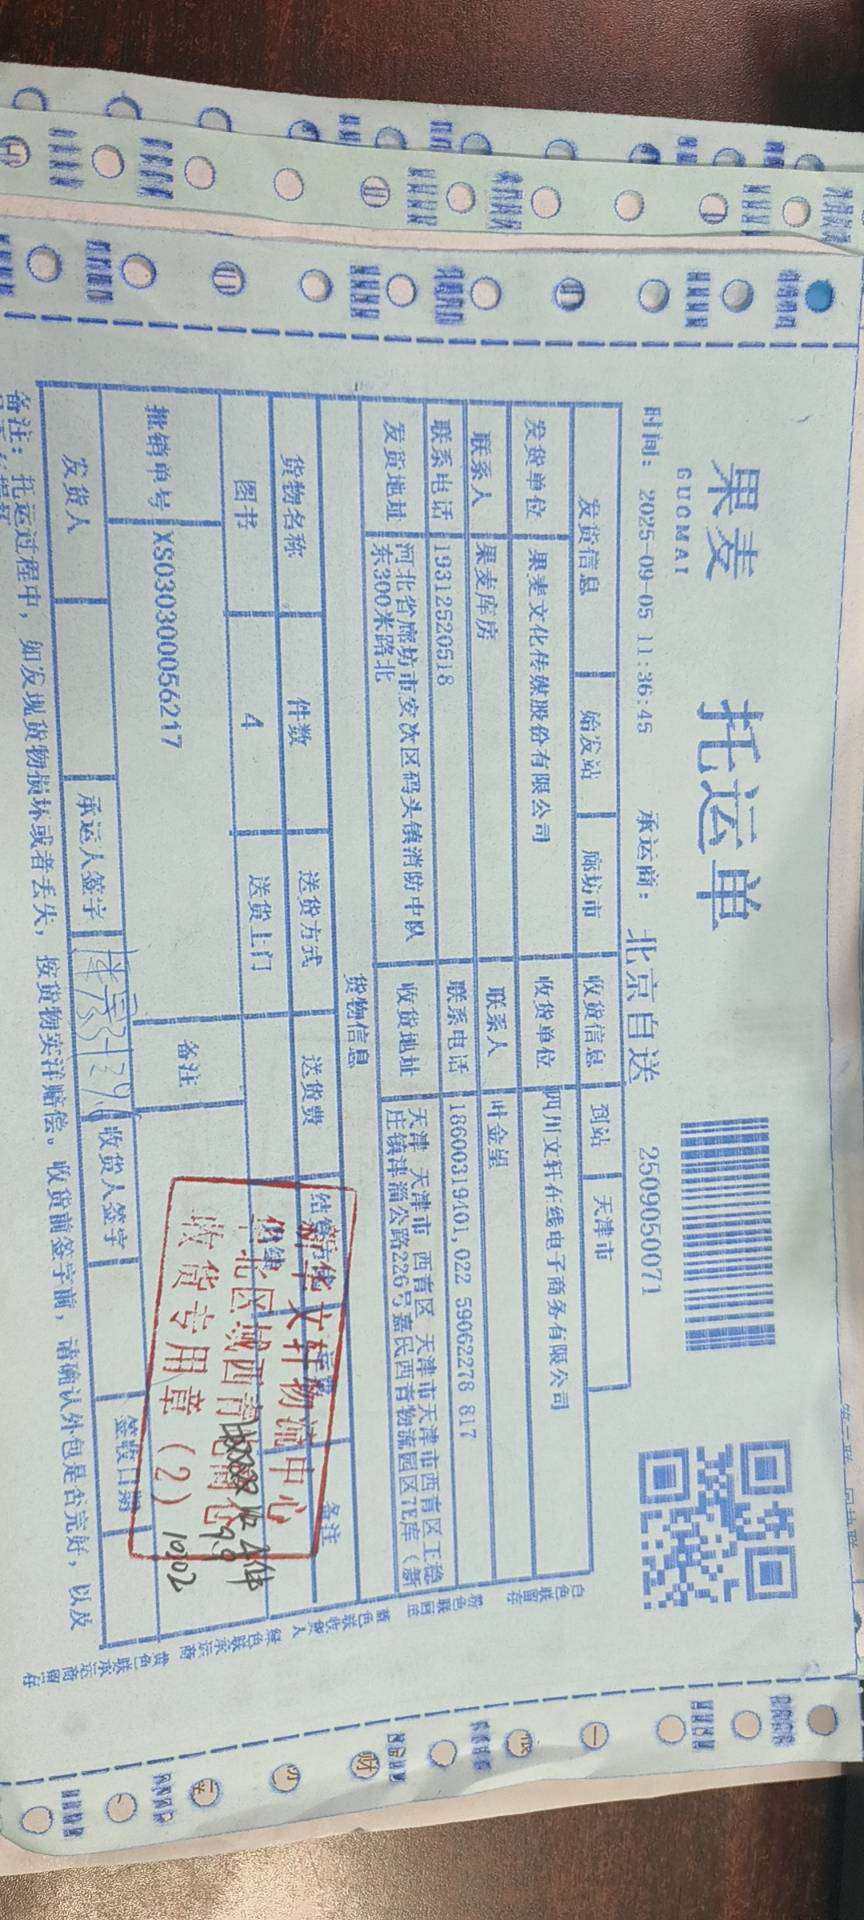 果麦
GUOMAI
托运单
时间: 2025-09-05 11:36:45 承运商: 北京自送 2509050071
发货信息 始发站 廊坊市 收货信息 到站 天津市
发货单位 果麦文化传媒股份有限公司 收货单位 四川文轩在线电子商务有限公司
联系人 果麦库房 联系人 叶金望
联系电话 19312520518 联系电话 18600319401,022 59062278 817
发货地址 河北省廊坊市安次区码头镇消防中队东300米路北 收货地址 天津 天津市 西青区 天津市天津市西青区王稳庄镇津淄公路226号嘉民西青物流园区7E库（新
货物信息
货物名称 件数 送货方式 送货费 备注
图书 4 送货上门
批销单号 XS030300056217 备注
新华文轩物流中心
收货专用章（2）
9.9
1002
发货人 承运人签字 收货人签字 签收日期
备注: 托运过程中，如发现货物损坏或者丢失，按货物实洋赔偿。收货前签字前，请确认外包是否完好，以及